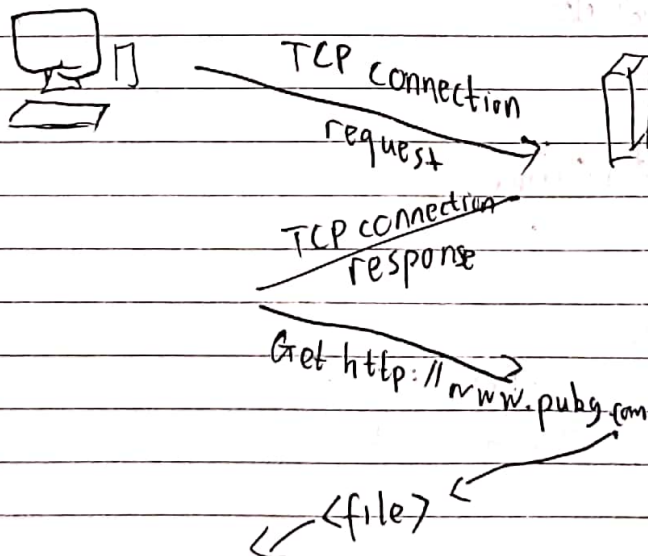 TCP connection
request
TCP connection
response
Get http://www.pubg.com
<file>